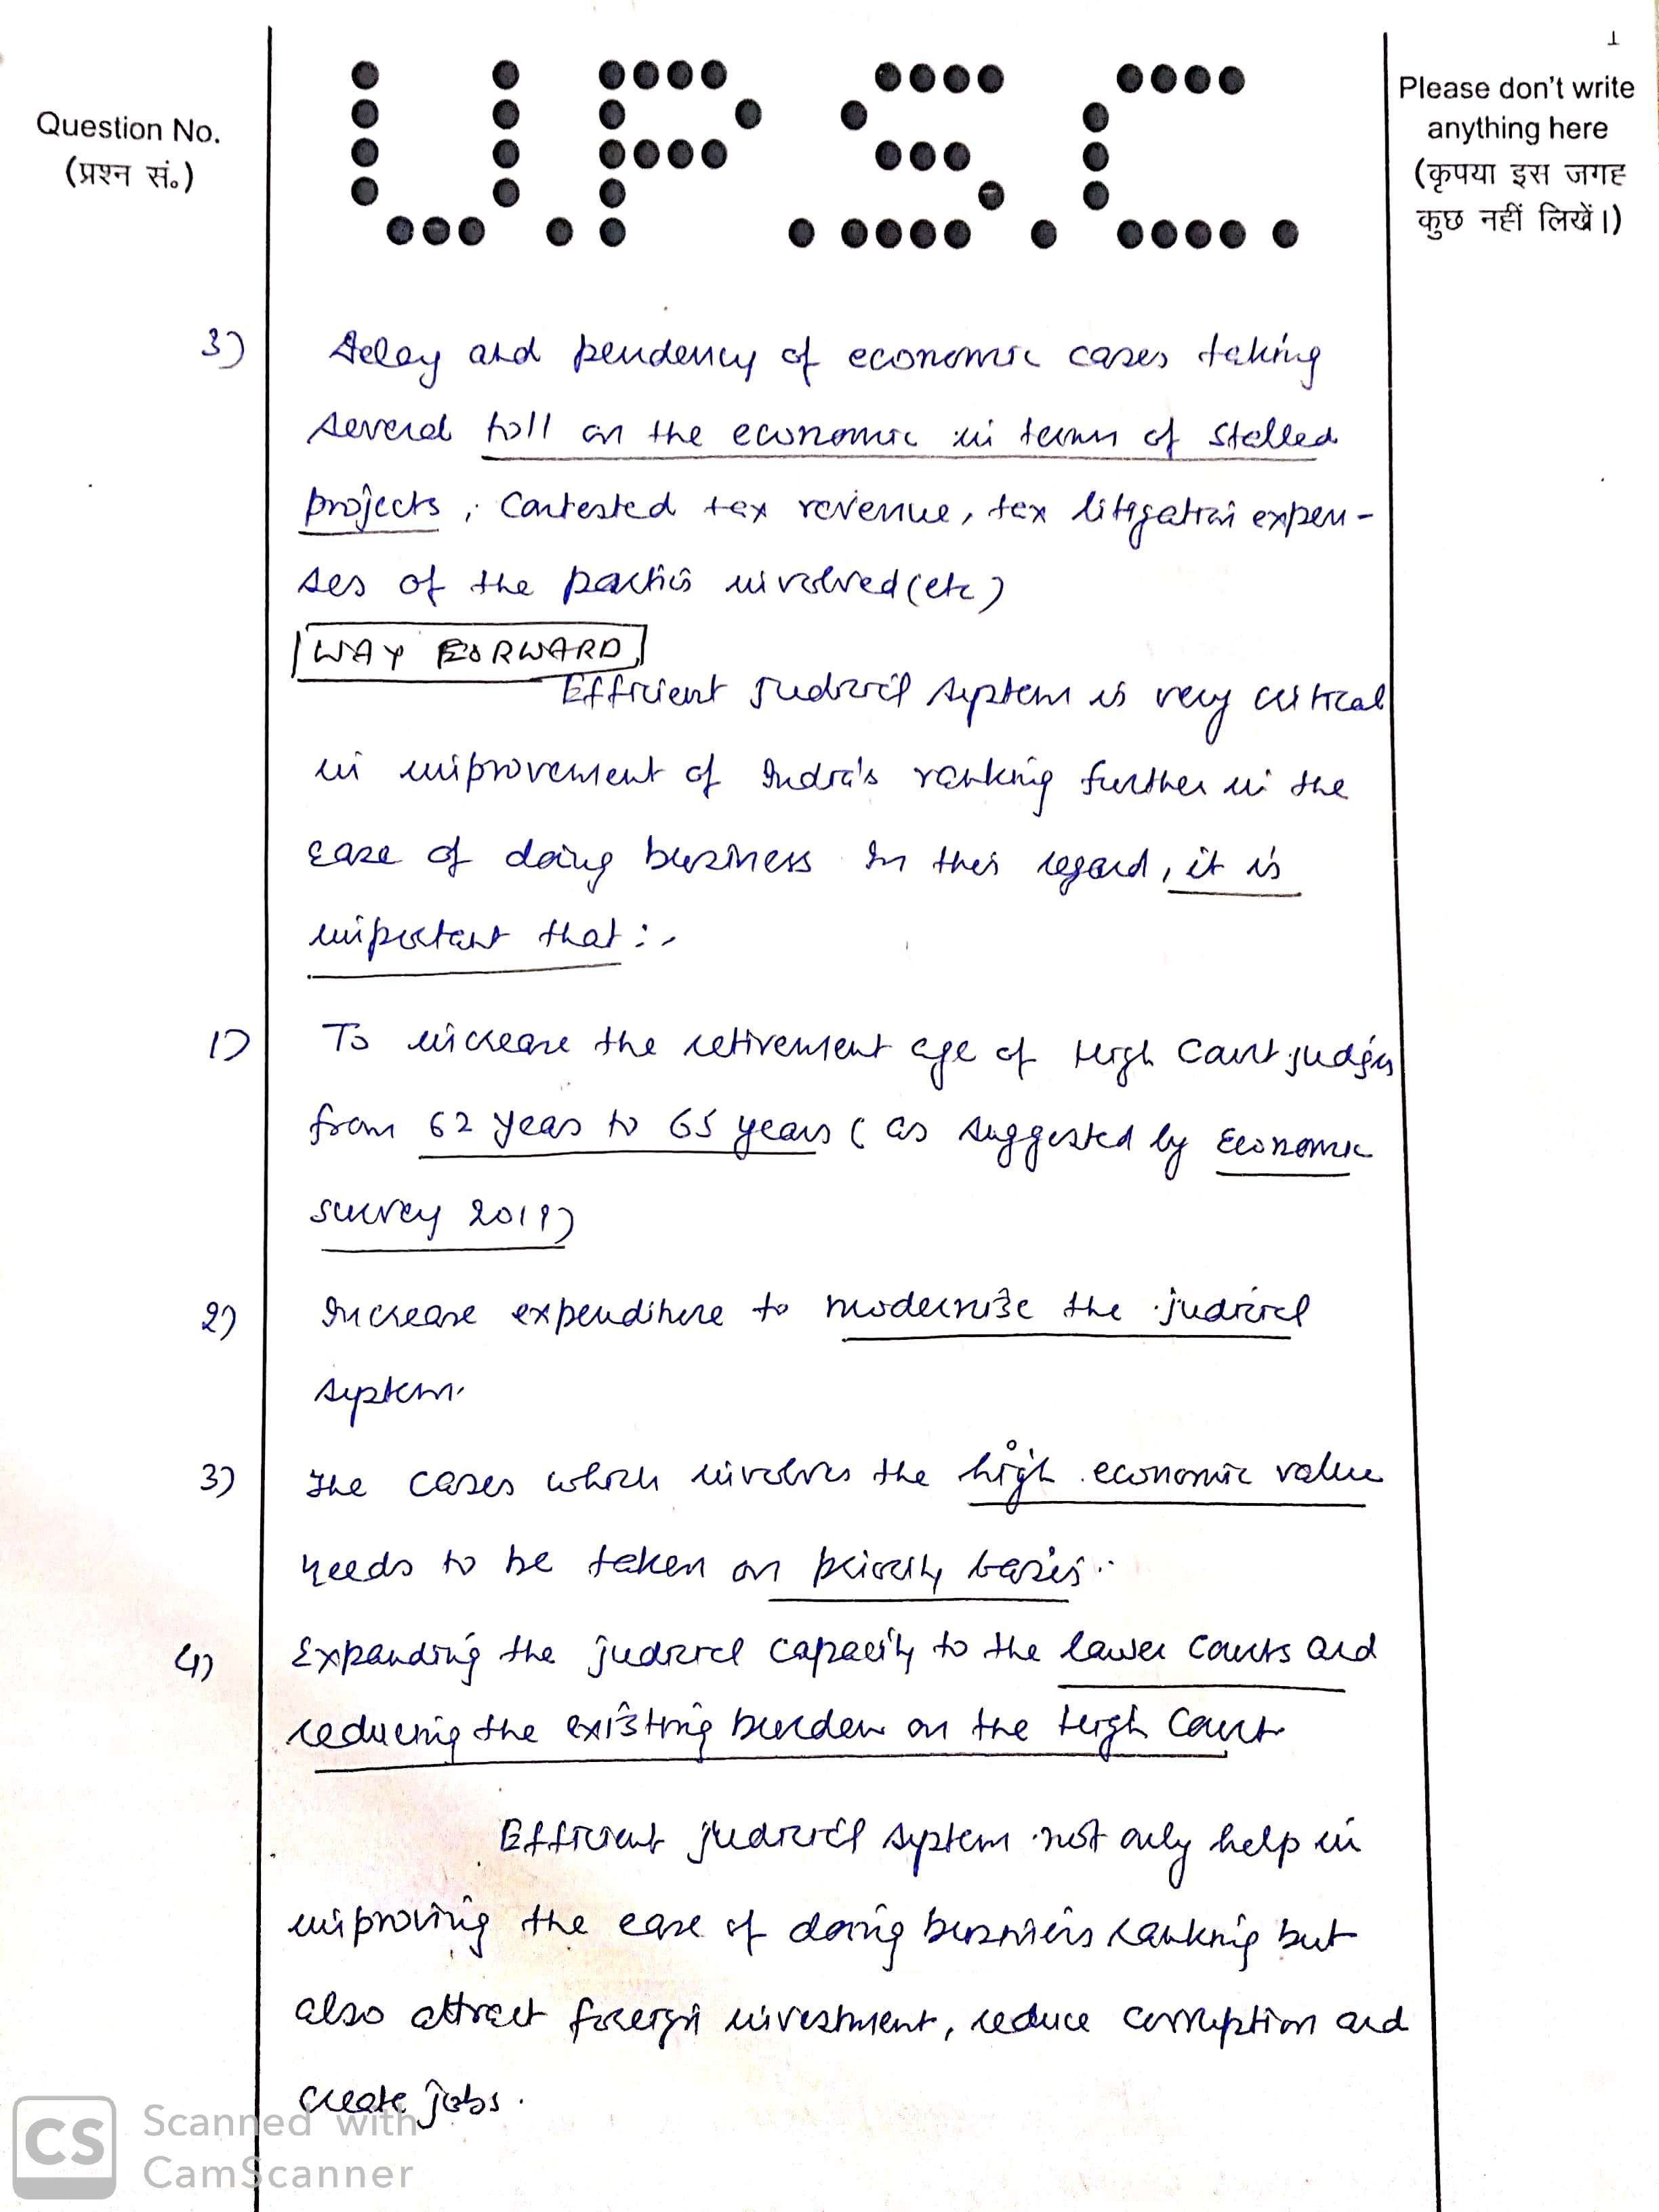 1
Question No.
(प्रश्न सं.)
U.P.S.C.
Please don't write
anything here
(कृपया इस जगह
कुछ नहीं लिखें।)
3) Delay and pendency of economic cases taking
several toll on the economic in terms of stalled
projects, contested tax revenue, tax litigation expen-
ses of the parties involved (etc)
WAY FORWARD
Efficient judicial system is very critical
in improvement of India's ranking further in the
ease of doing business In this regard, it is
important that :-
1) To increase the retirement age of High Court judges
from 62 years to 65 years (as suggested by Economic
survey 2019)
2) Increase expenditure to modernise the judicial
system.
3) The cases which involves the high economic value
needs to be taken on priority basis.
4) Expanding the judicial capacity to the lower courts and
reducing the existing burden on the High Court
Efficient judicial system not only help in
improving the ease of doing business ranking but
also attract foreign investment, reduce corruption and
create jobs.
CS Scanned with
CamScanner